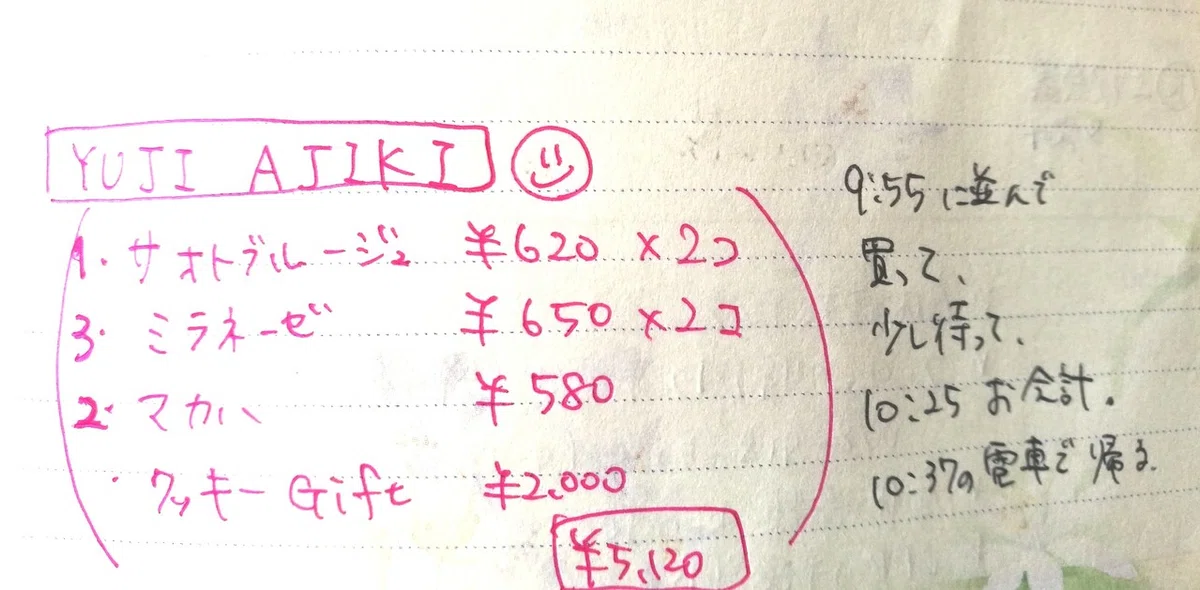 YUJI AJIKI
1. サオトブルージュ ¥620 ×2コ
3. ミラネーゼ ¥650 ×2コ
2. マカハ ¥580
・クッキー Gift ¥2,000
¥5,120
9:55 に並んで
買って、
少し待って、
10:25 お会計.
10:37の電車で帰る.